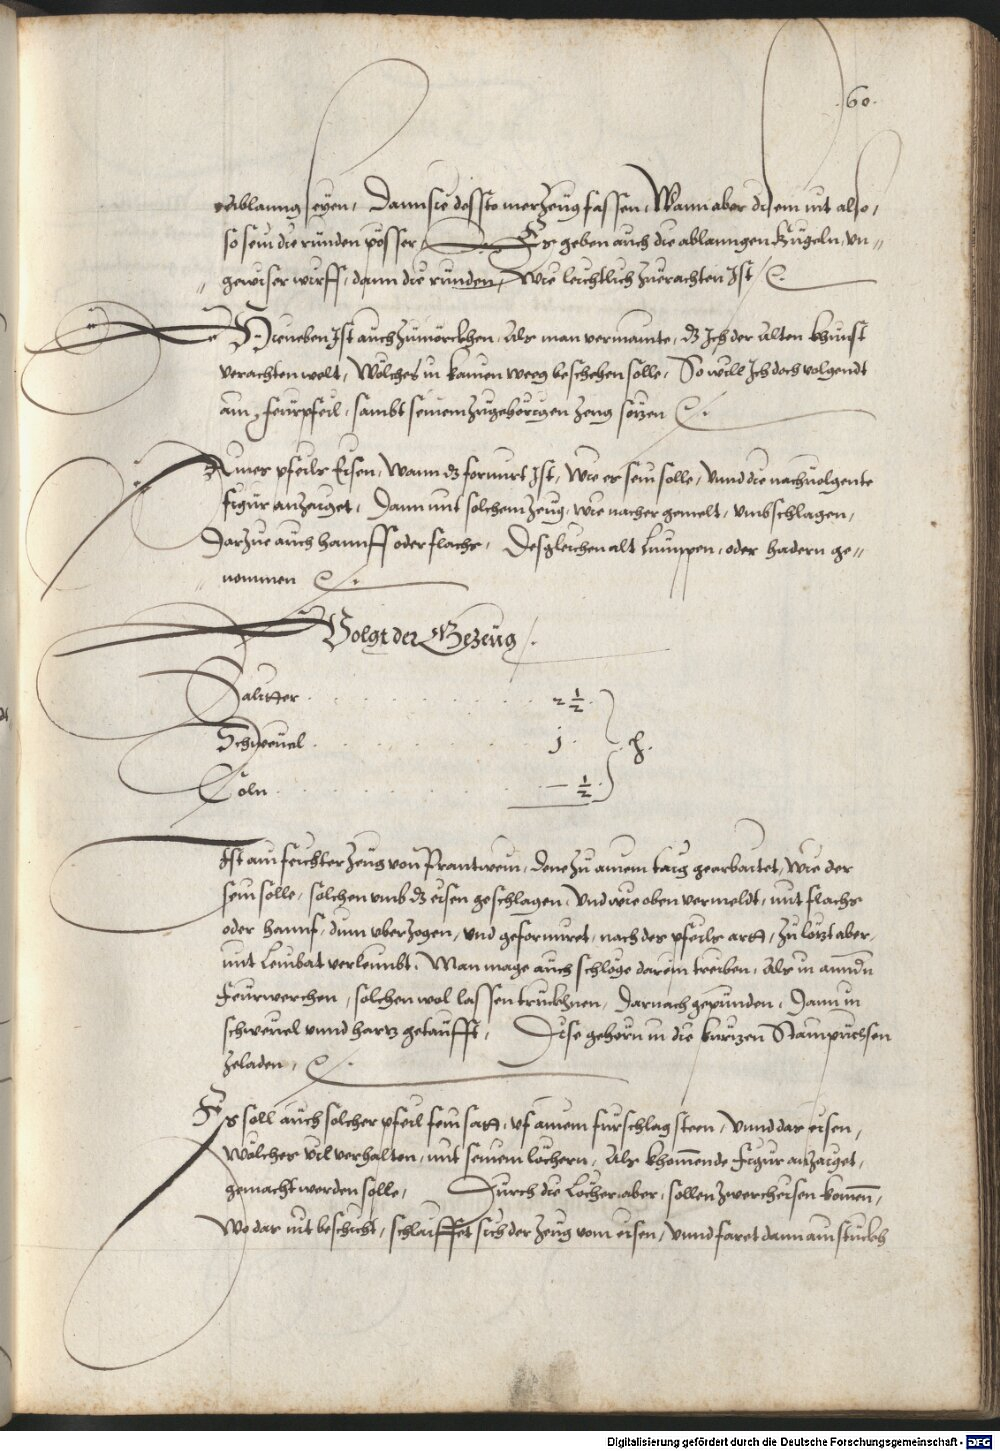 .60.
ablanng seyen, Dann sie dessto mer Zeüg fassen, Wann aber disem nit also,
so sein die ründen pösser, Es geben auch die ablanngen Kügeln, vn„
„ gewiser würff, dann die ründen, Wie leichtlich zuerachten Ist /.
Hieneben Ist auch zümörckhen, Als man vermainte, dz Ich der Alten khunst
verachten wolt, Wölches in kainen weeg beschehen solle, So will Ich doch volgendt
ain feürpfeil, sambt seinem zügehörigen zeug sözen /.
Ainer pfeils Eisen, Wann dz formirt Ist, Wie er sein solle, Vnnd die nachuolgente
figür anzaiget, Dann mit solchem zeüg, wie nacher gemelt, vmbschlagen,
Darzüe auch hannff oder flachs, Desgleichen alt Lumppen, oder hadern ge„
„ nommen /.
Volgt der Gezeüg /.
Salitter . . . . . . . 2 1/2.
Schweuel . . . . . . . j . lb.
Coln . . . . . . . — 1/2.
Ist ain feichter zeüg von Prantwein, dene zü ainem taig gearbaitet, Wie der
sein solle, solchen vmb dz eisen geschlagen, Vnd wie oben vermeldt, mit flachs
oder hannf, dinn vberzogen, vnd geformiret, nach der pfeils artt, zü lözt aber,
mit Leinbat verleimbt. Man mage auch schlöge darein treiben, Als in anndn
Feürwerchen, solchen wol lassen trückhnen, Darnach gepünden, Dann in
schweuel vnnd hartz getaüfft, Dise gehörn in die kurtzen Stainpüchsen
zeladen, /.
Es soll auch solcher pfeil fein satt, vf ainem fürschlag steen, Vnnd das eisen,
Wölches vil verhalten, mit seinem löchern, Als khomende figur anzaiget,
gemacht werden solle, Durch die Löcher aber, sollen zwercheisen komen,
Wo das nit beschicht, schlaiffet sich der zeüg vom eisen, Vnnd faret dann ain stückh
Digitalisierung gefördert durch die Deutsche Forschungsgemeinschaft - DFG